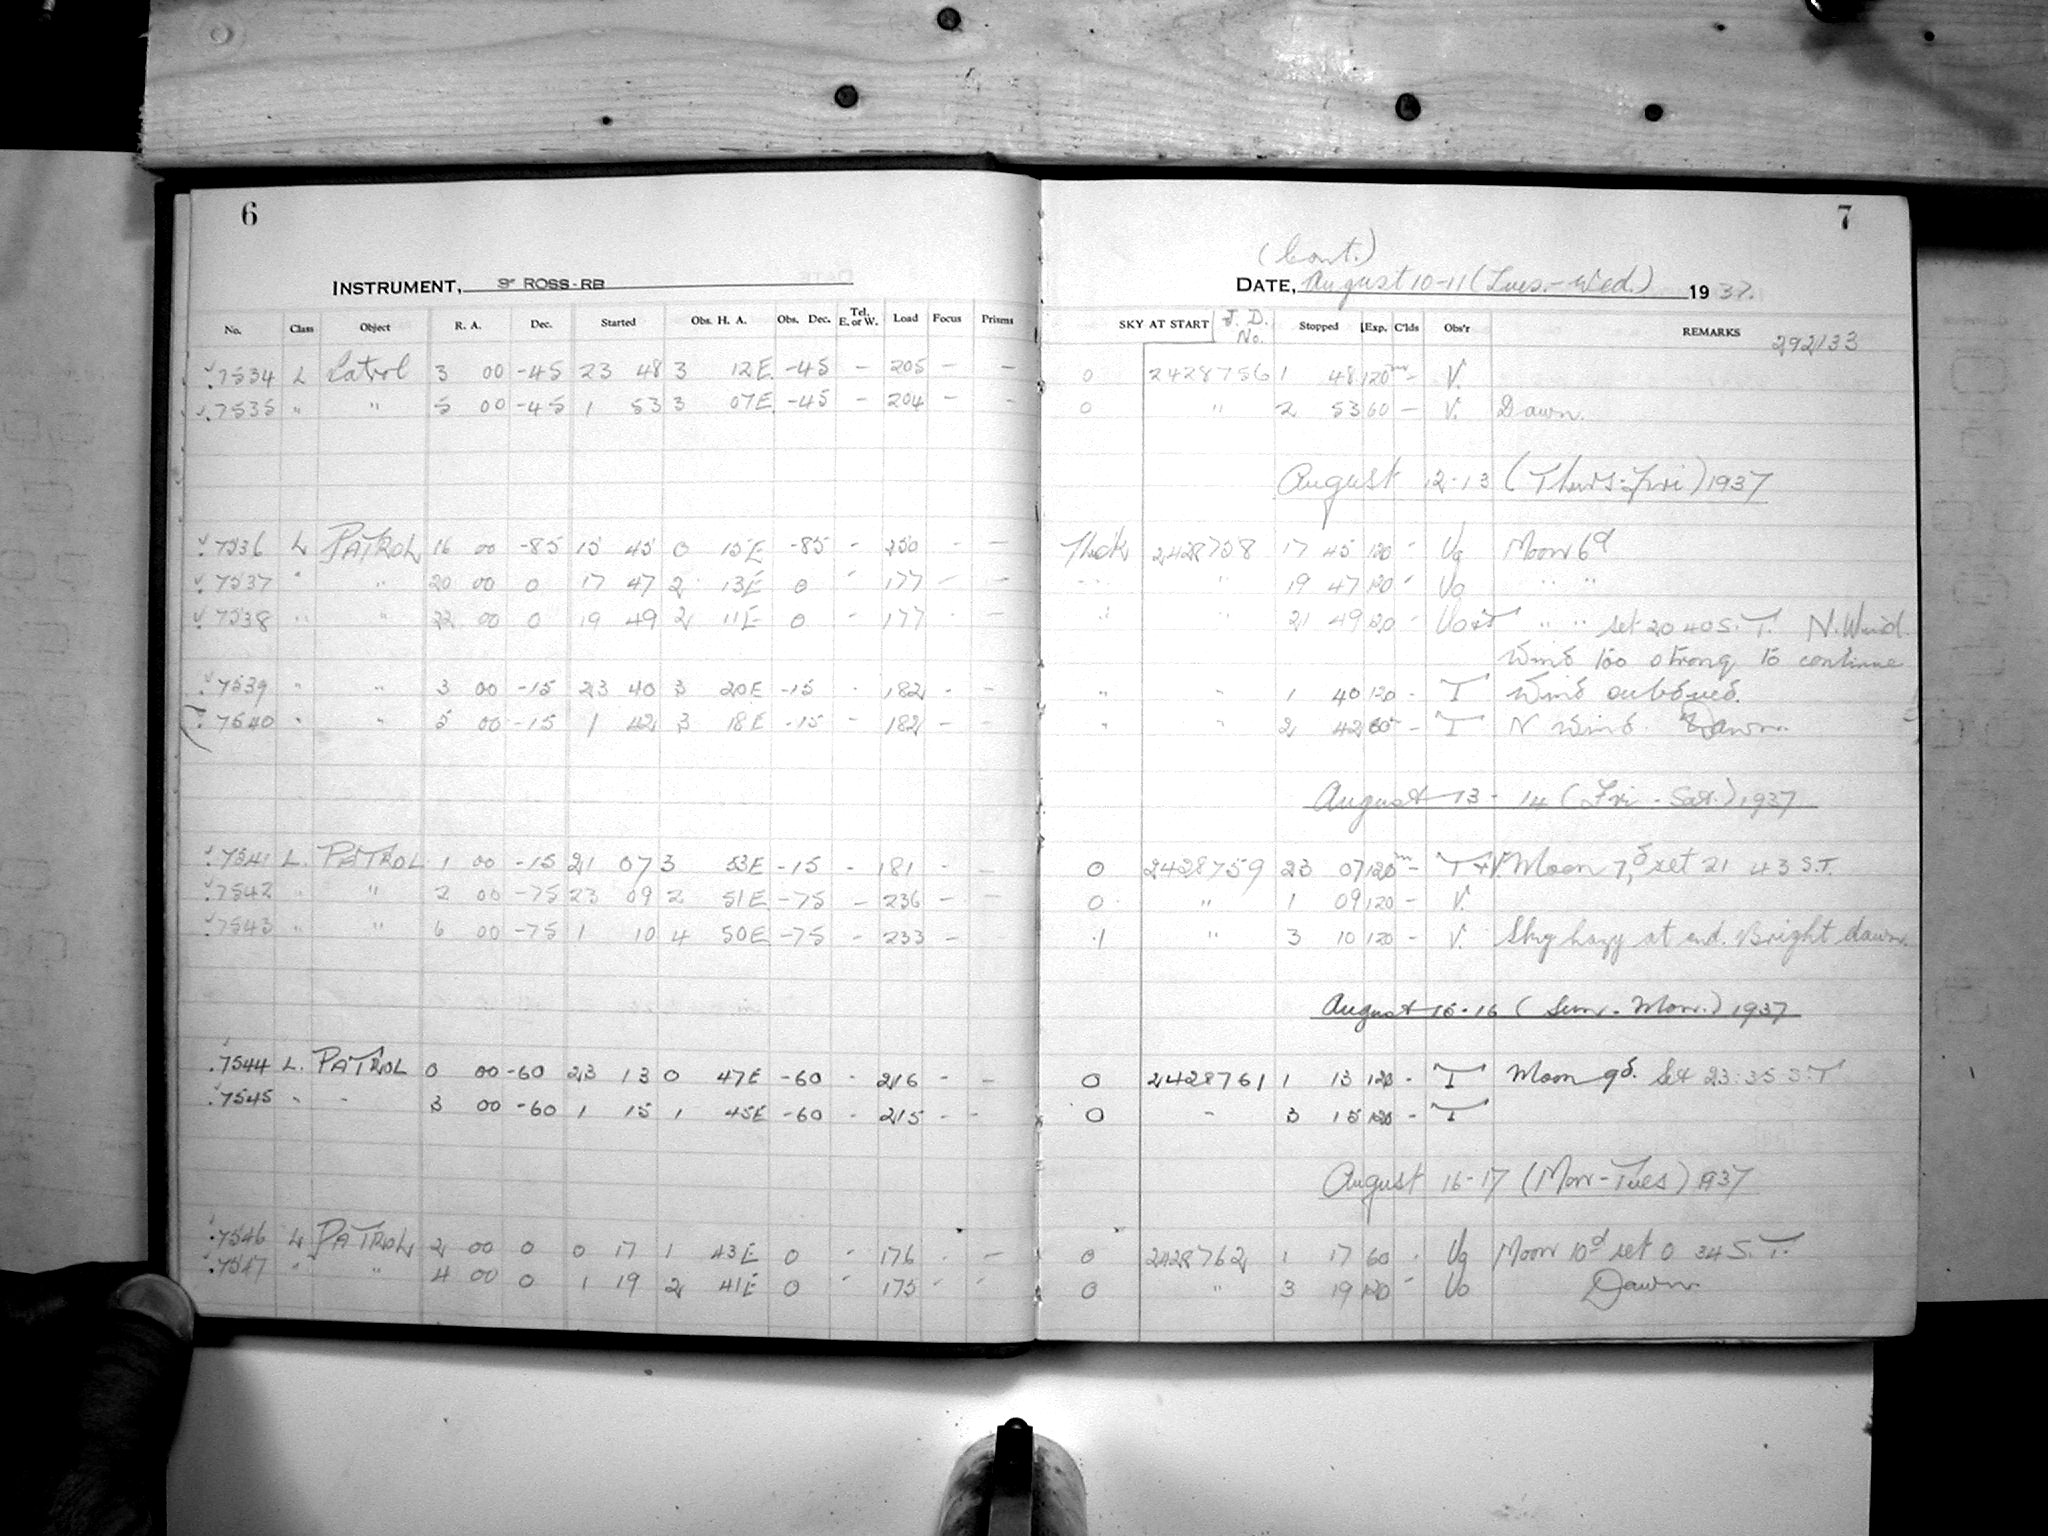 6
INSTRUMENT, 3" ROSS-RB
No. Class Object R. A. Dec. Started Obs. H. A. Obs. Dec. Tel. E. or W. Load Focus Prisms
7534 L Patrol 3 00 -45 23 48 3 12E -45 - 205 - -
7535 " " 5 00 -45 1 53 3 07E -45 - 204 - -
7536 L PATROL 16 00 -85 15 45 0 15E -85 - 250 - -
7537 " " 20 00 0 17 47 2 13E 0 - 177 - -
7538 " " 22 00 0 19 49 2 11E 0 - 177 - -
7539 " " 3 00 -15 23 40 3 20E -15 - 182 - -
7540 " " 5 00 -15 1 42 3 18E -15 - 182 - -
7541 L. PATROL 1 00 -15 21 07 3 53E -15 - 181 - -
7542 " " 2 00 -75 23 09 2 51E -75 - 236 - -
7543 " " 6 00 -75 1 10 4 50E -75 - 233 -
7544 L. PATROL 0 00 -60 23 13 0 47E -60 - 216 - -
7545 " " 3 00 -60 1 15 1 45E -60 - 215 - -
7546 L PATROL 2 00 0 0 17 1 43E 0 - 176 - -
7547 " " 4 00 0 1 19 2 41E 0 - 175 - -
7
(Cont.)
DATE, August 10-11 (Tues.-Wed.) 1937.
SKY AT START J. D. No. Stopped Exp. C'lds Obs'r REMARKS 292133
0 2428756 1 48 120m - V.
0 " 2 53 60 - V. Dawn.
August 12-13 (Thurs-Fri) 1937
Thick 2428758 17 45 120 - Uo Moon 6d
" " 19 47 120 - Uo " "
" " 21 49 120 - Uo+T " " set 20 40 S.T. N. Wind.
Wind too strong to continue
" " 1 40 120 - T Wind subdued.
" " 2 42 60 - T N Wind. Dawn.
August 13-14 (Fri - Sat.) 1937
0 2428759 23 07 120m - T+V. Moon 7d, set 21 43 S.T.
0 " 1 09 120 - V.
.1 " 3 10 120 - V. Sky hazy at end. Bright dawn.
August 15-16 (Sun. - Mon.) 1937
0 2428761 1 13 120 - T Moon 9d. Set 23:35 S.T
0 " 3 15 120 - T
August 16-17 (Mon-Tues) 1937
0 2428762 1 17 60 - Uo Moon 10d set 0 34 S.T.
0 " 3 19 120 - Uo Dawn.